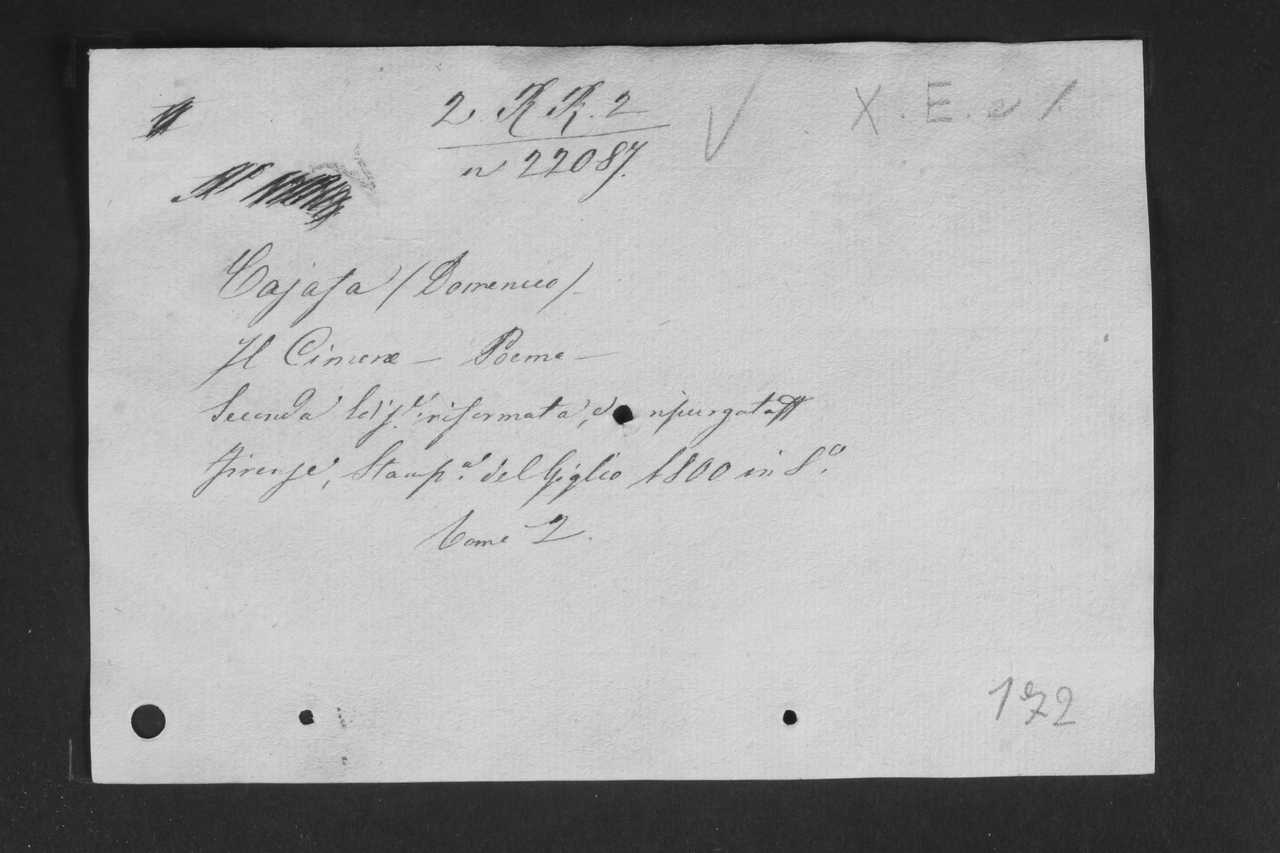 2. R R. 2
X. E. e 1.
n 22087.
Cajafa (Domenico)
Il Cimene — Poema —
Seconda Ediz.e riformata, e ripurgata
Firenze, Stamp.a del Giglio 1800 in 8.o
Tome 2.
172